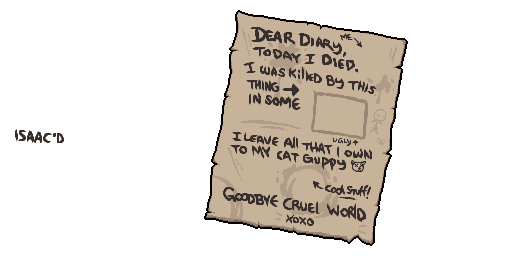 ISAAC'D
DEAR DIARY,
ME
TODAY I DIED.
I WAS KILLED BY THIS
THING
IN SOME
UGLY
I LEAVE ALL THAT I OWN
TO MY CAT GUPPY
COOL STUFF!
GOODBYE CRUEL WORLD
XOXO